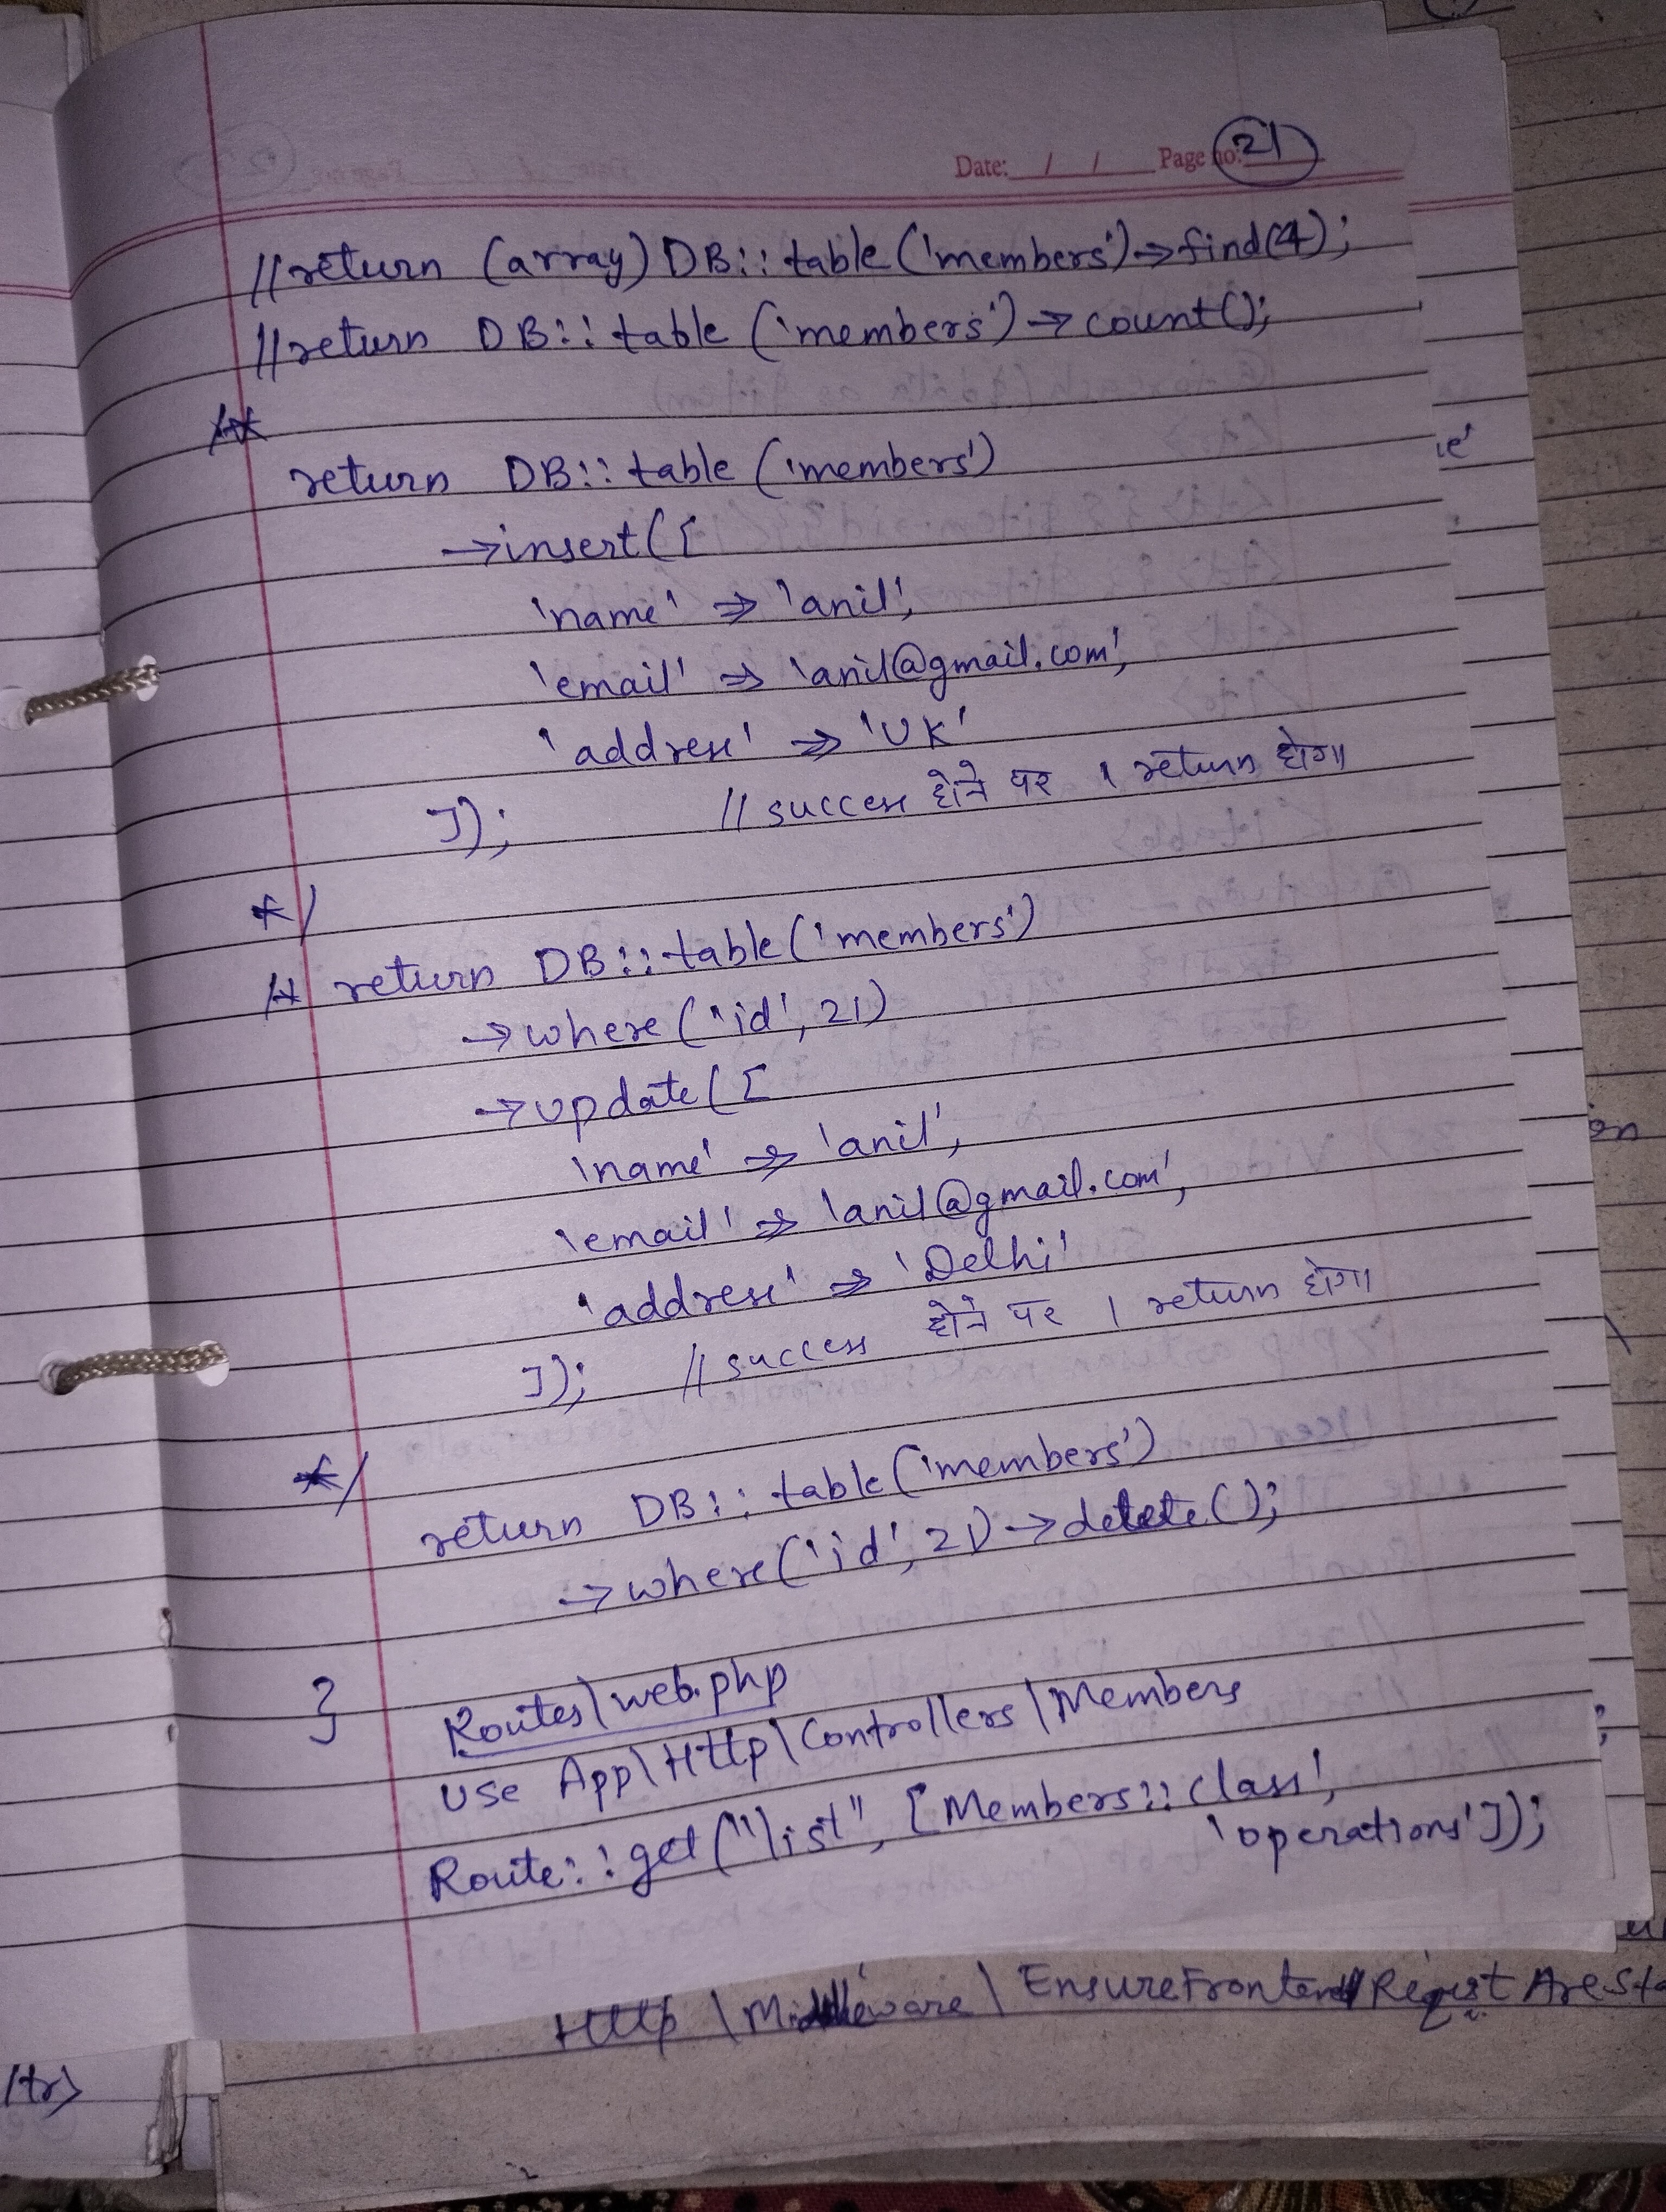 Date: / / Page no: 21
//return (array) DB::table('members')->find(4);
//return DB::table('members')->count();
/*
return DB::table('members')
->insert([
'name' => 'anil',
'email' => 'anil@gmail.com',
'address' => 'UK'
]); // success होने पर 1 return होगा
*/
/* return DB::table('members')
->where('id', 21)
->update([
'name' => 'anil',
'email' => 'anil@gmail.com',
'address' => 'Delhi'
]); // success होने पर 1 return होगा
*/
return DB::table('members')
->where('id', 21)->delete();
}
Routes\web.php
use App\Http\Controllers\Members
Route::get("list", [Members::class',
'operations']);
Http\Middleware\EnsureFrontend Request Are Sta
/tr>